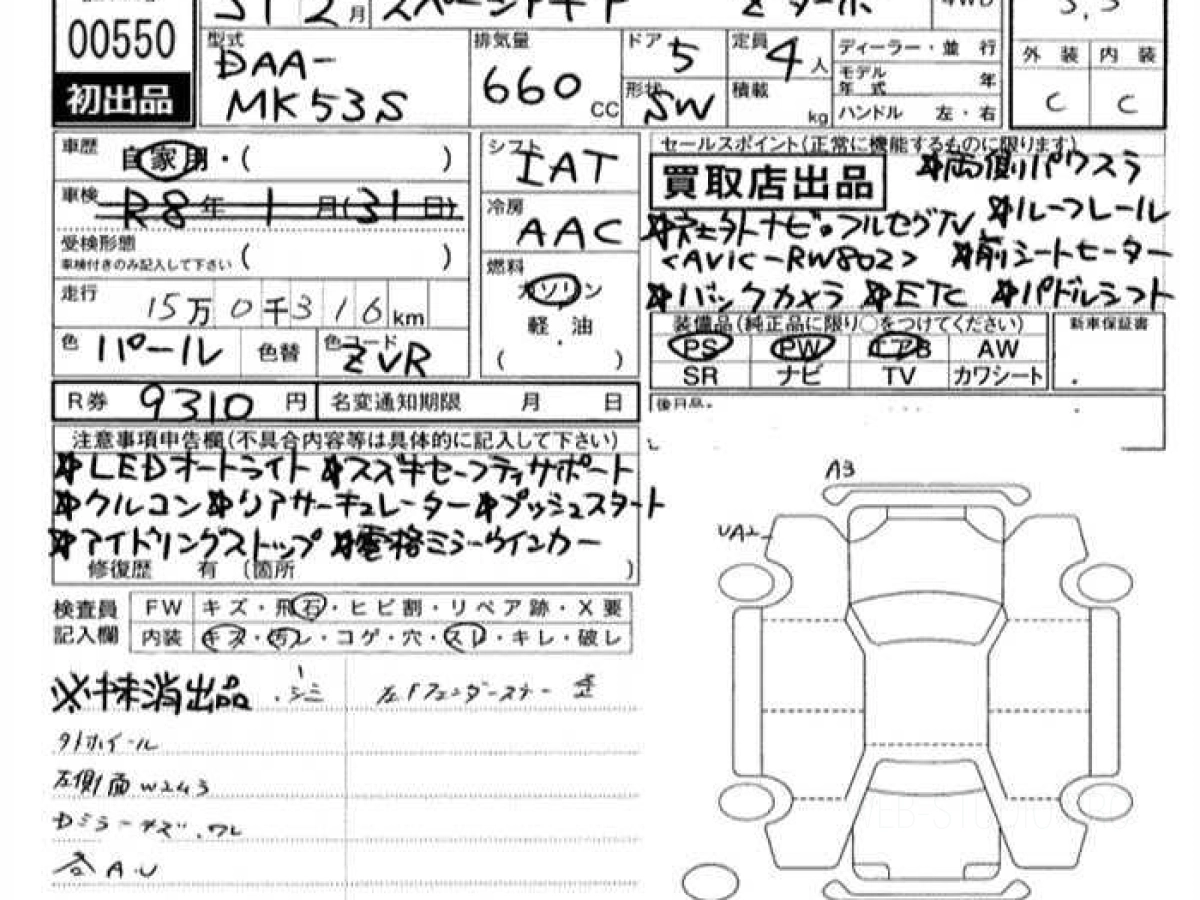 00550
初出品
31 2月 スペーシアギア
型式 DAA-
MK53S
排気量 660 CC
ドア 5
形状 SW
定員 4人
積載 kg
ディーラー・並 行
モデル年式 年
ハンドル 左・右
外 装 内 装
C C
車歴 自家用・( )
車検 R8年 1月(31日)
受検形態
車検付きのみ記入して下さい ( )
走行 15万0千316km
色 パール 色替 色コード ZVR
シフト IAT
冷房 AAC
燃料 ガソリン
軽 油
( )
セールスポイント(正常に機能するものに限ります)
買取店出品 *両側パワスラ
*社外ナビ・フルセグTV *ルーフレール
<AVIC-RW802> *前シートヒーター
*バックカメラ *ETC *パドルシフト
装備品(純正品に限り○をつけてください) 新車保証書
PS PW エアB AW
SR ナビ TV カワシート
R券 9310円 名変通知期限 月 日
後日品
注意事項申告欄(不具合内容等は具体的に記入して下さい)
*LEDオートライト *スズキセーフティサポート
*クルコン *リアサーキュレーター *プッシュスタート
*アイドリングストップ *電格ミラーウインカー
修復歴 有 (箇所 )
検査員記入欄
FW キズ・飛石・ヒビ割・リペア跡・X要
内装 キズ・汚レ・コゲ・穴・スレ・キレ・破レ
※抹消出品 ・シミ 左Fフェンダーステー
外ホイール
左側面W2W3
Dミラーキズ・ワレ
各A・U
A3
UA2